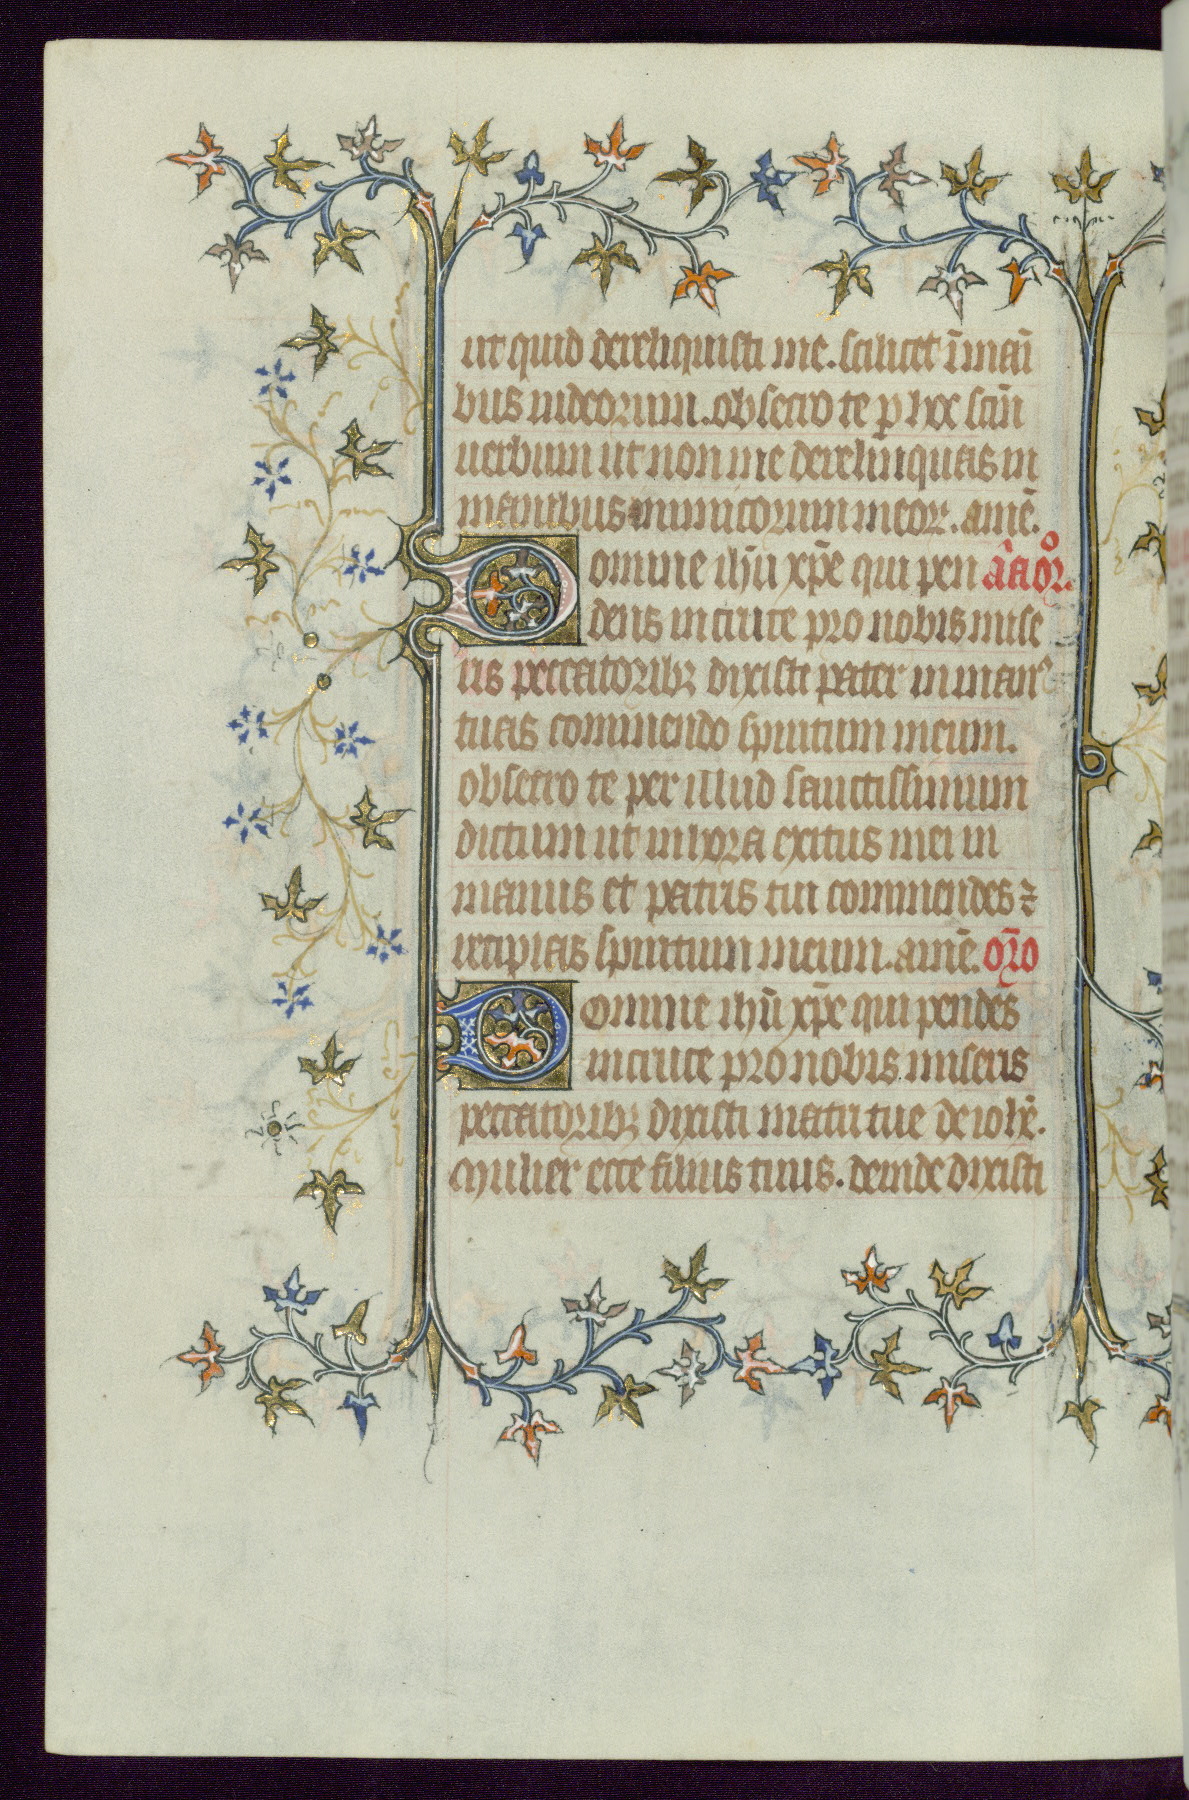 ut quid dereliquisti me. scilicet ī mani
bus iudeorum. obsecro te p hoc scm̄
uerbum ut non me derelinquas in
manibus inimicorum meor. amē.
Domine ihū xp̄e qui pen
dens in cruce pro nobis mise
ris peccatoribꝫ dixisti pater in man⁹
tuas commendo spiritum meum.
obsecro te per illud sanctissimum
dictum ut in hora exitus mei in
manus et patris tui commendes ⁊
recipias spiritum meum. amē. or̄o
Domine ihū xp̄e qui pendes
in cruce pro nobis miseris
peccatoribꝫ dixisti matri tue de ioh̄e.
Mulier ecce filius tuus. deinde dixisti